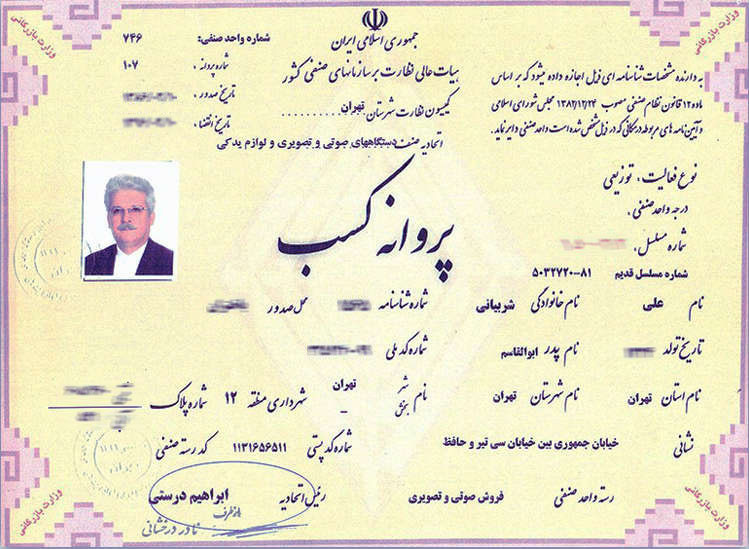 وزارت بازرگانی
وزارت بازرگانی
جمهوری اسلامی ایران
هیات عالی نظارت بر سازمانهای صنفی کشور
کمیسیون نظارت شهرستان تهران
اتحادیه صنف دستگاههای صوتی و تصویری و لوازم یدکی
شماره واحد صنفی: ۷۴۶
شماره پروانه : ۱۰۷
تاریخ صدور :
تاریخ انقضاء :
به دارنده مشخصات شناسنامه ای ذیل اجازه داده میشود که بر اساس
ماده ۱۲ قانون نظام صنفی مصوب ۱۳۸۲/۱۲/۲۴ مجلس شورای اسلامی
و آیین نامه های مربوطه در مکانی که در ذیل مشخص شده است واحد صنفی دایر نماید.
پروانه کسب
نوع فعالیت : توزیعی
درجه واحد صنفی :
شماره مسلسل :
شماره مسلسل قدیم ۵۰۳۲۷۲۰-۸۱
نام علی نام خانوادگی شربیانی شماره شناسنامه محل صدور
تاریخ تولد نام پدر ابوالقاسم شماره کد ملی
نام استان تهران نام شهرستان تهران نام شهر تهران بخش – شهرداری منطقه ۱۲ شماره پلاک
نشانی خیابان جمهوری بین خیابان سی تیر و حافظ شماره کد پستی ۱۱۳۱۶۵۶۵۱۱ کد رسته صنفی
رسته واحد صنفی فروش صوتی و تصویری رئیس اتحادیه ابراهیم درستی
از طرف
نادر درخشانی
وزارت بازرگانی
وزارت بازرگانی